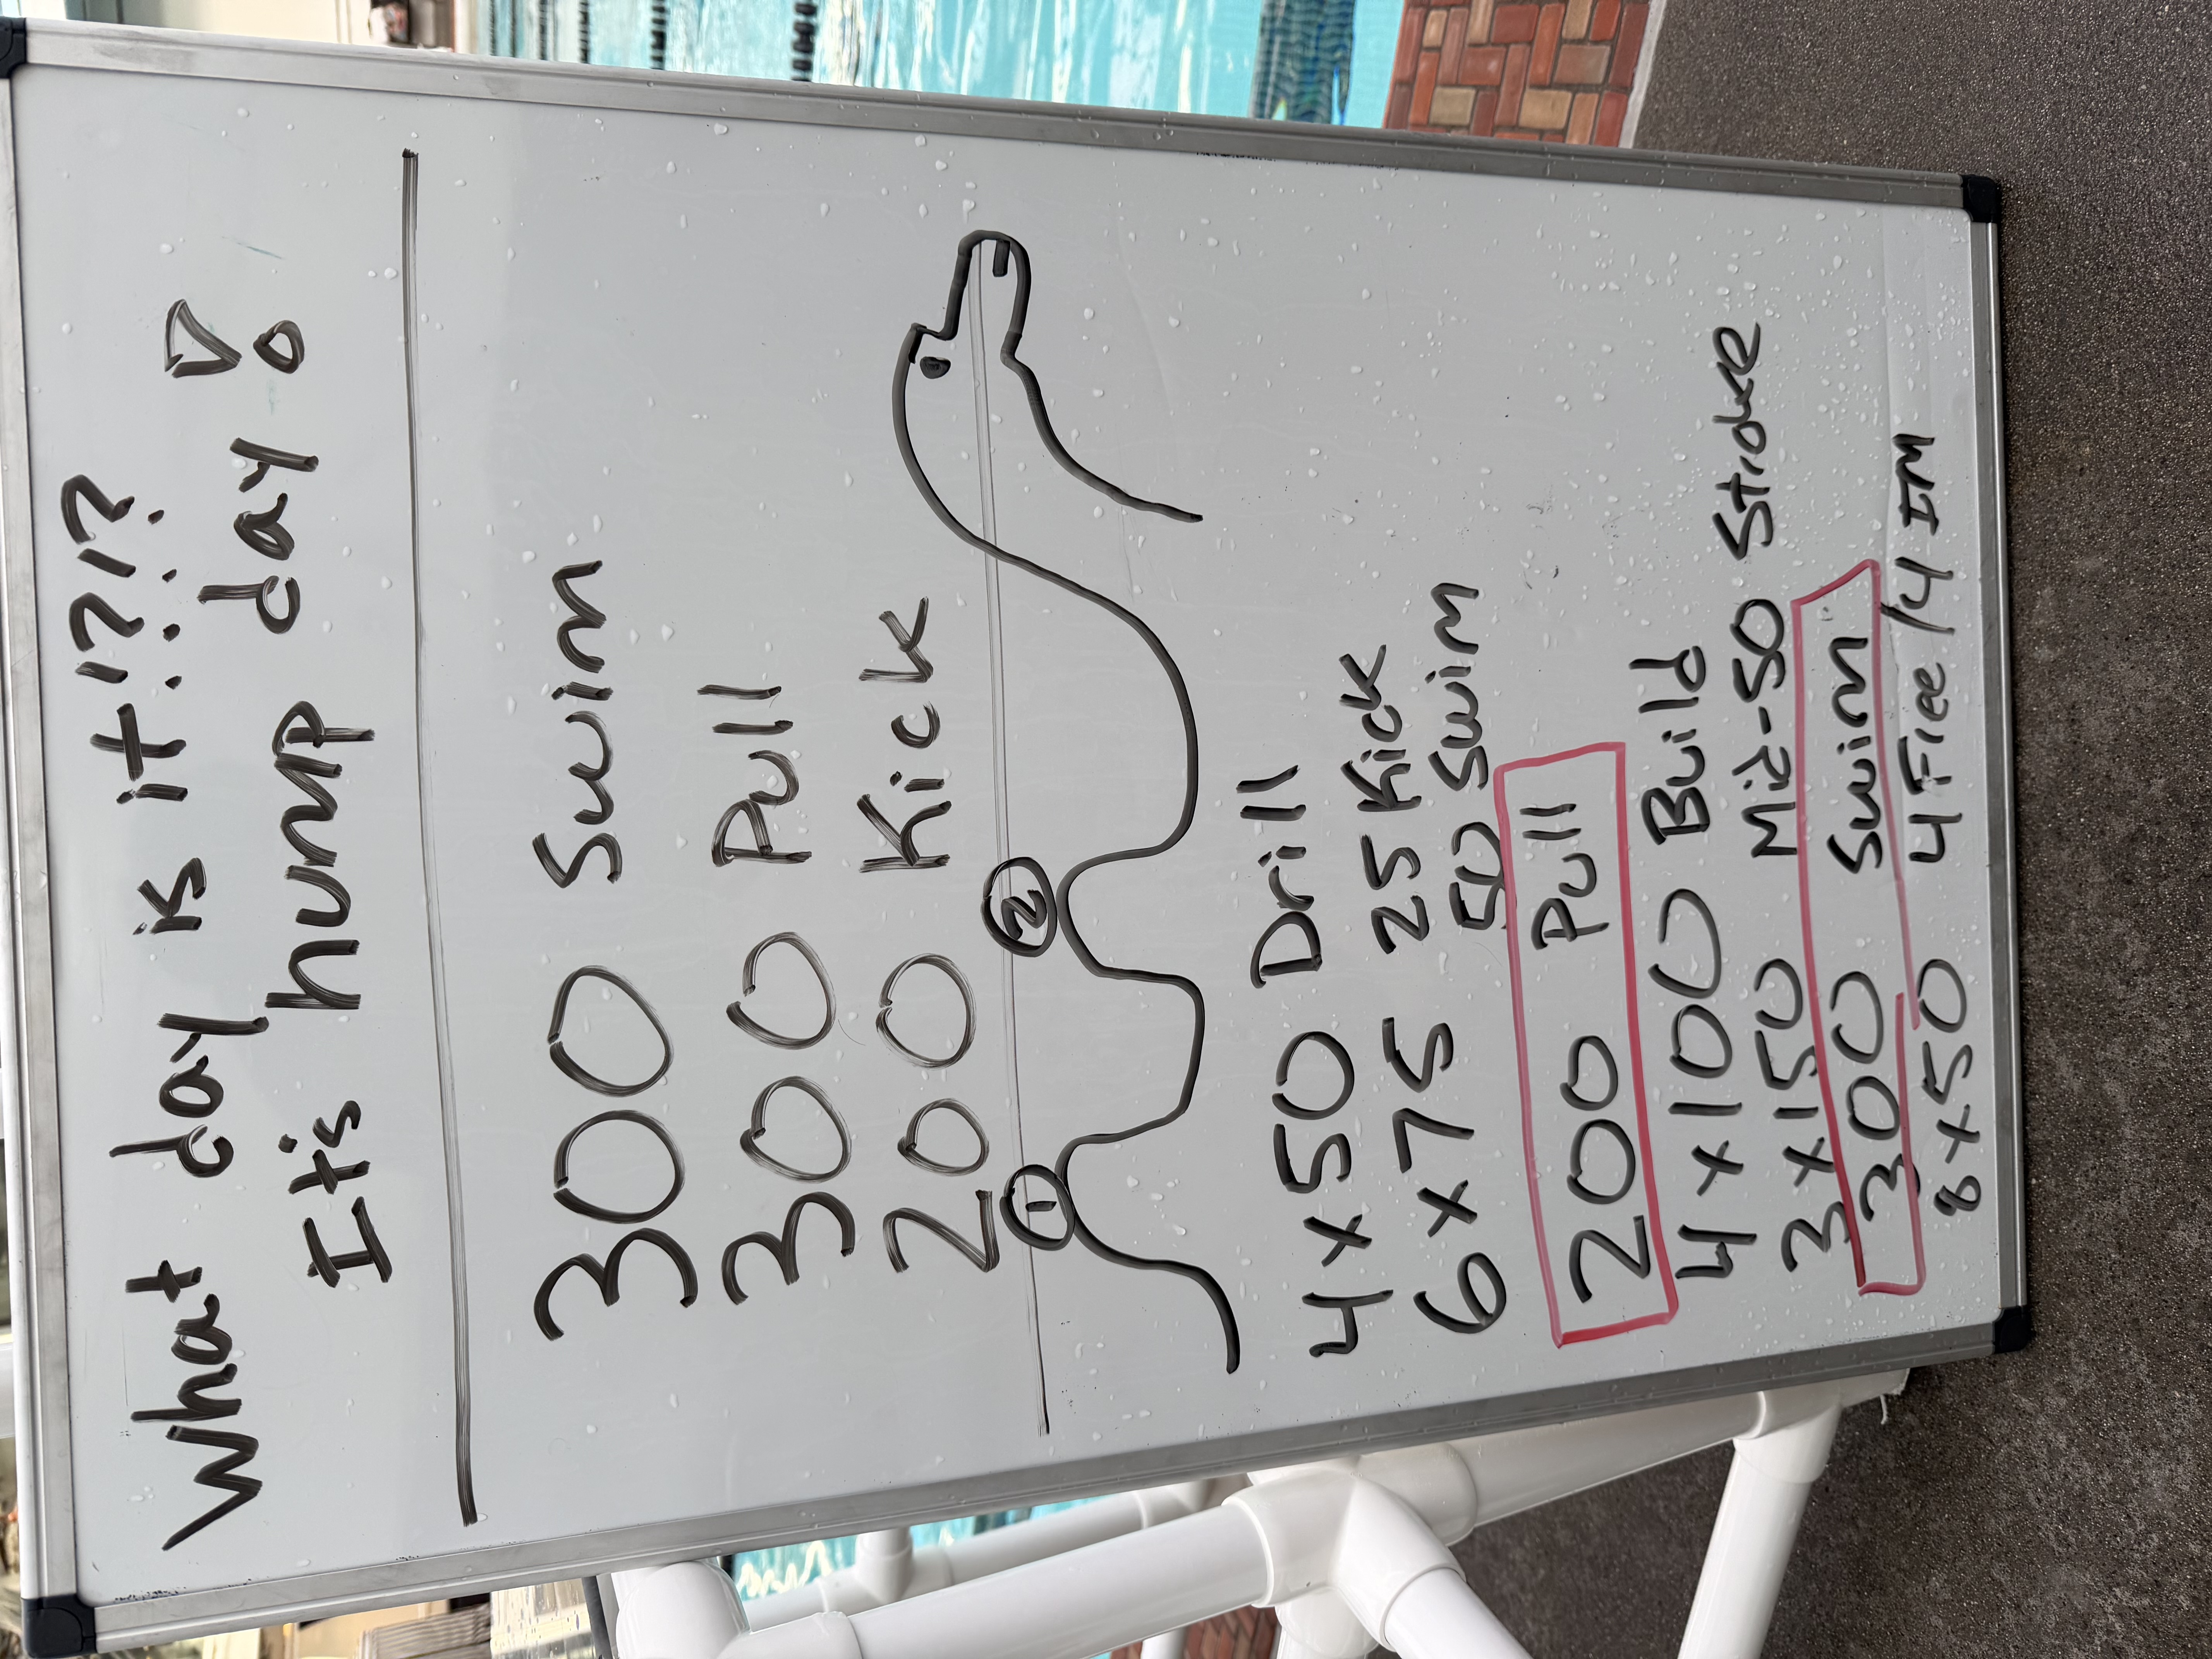 What day is it?!?!?
It is hump day!
300 Swim
300 Pull
200 Kick
1 2
4 x 50 Drill
6 x 75 25 Kick
50 Swim
200 Pull
4 x 100 Build
3 x 150 Mid-50 Stroke
300 Swim
8 x 50 4 Free / 4 IM